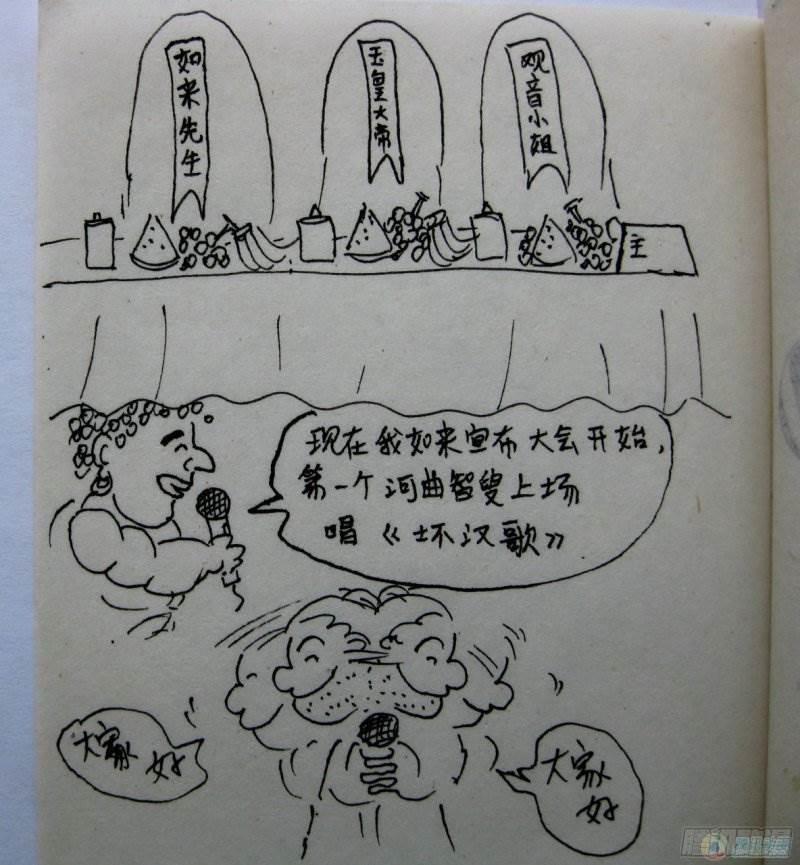 如来先生
玉皇大帝
观音小姐
主
现在我如来宣布大会开始,
第一个河曲智叟上场
唱《坏汉歌》
大家好
大家
好